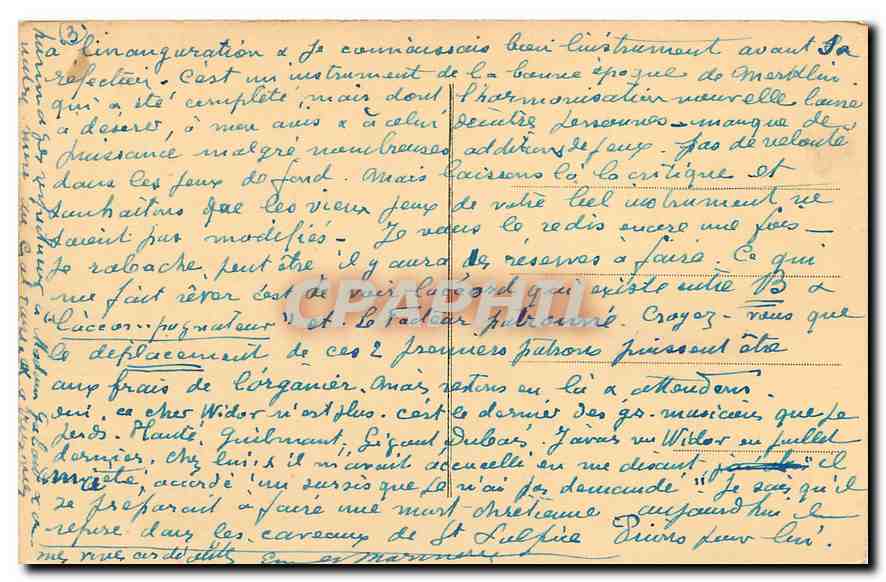 (3)
à l'inauguration & je connaissais bien l'instrument avant sa
refection. C'est un instrument de la bonne époque de Merklin
qui a été complété, mais dont l'harmonisation nouvelle laisse
à désirer, à mon avis & à celui d'autres personnes - manque de
puissance malgré nombreuses additions de jeux. pas de velouté
dans les jeux de fond. Mais laissons là la critique et
souhaitons que les vieux jeux de votre bel instrument ne
soient pas modifiés - Je vous le redis encore une fois -
Je rabache, peut être, il y aura des réserves à faire. Ce qui
me fait rêver c'est de voir l'accord qui existe entre B &
"l'accor..pagnateur" et le facteur patronné. Croyez-vous que
le déplacement de ces 2 premiers patrons puissent être
aux frais de l'organier. Mais restons en là & attendons
oui, ce cher Widor n'est plus. c'est le dernier des gds musiciens que je
perds. Guilmant, Gigout, Dubois. J'avais vu Widor en juillet
dernier, chez lui, & il m'avait accueilli en me disant il
m'a été accordé "un sursis que je n'ai pas demandé". Je sais qu'il
se préparait à faire une mort chrétienne aujourd'hui il
repose dans les caveaux de St Sulpice Prions pour lui.
mes vives cordialités
hommages respectueux à Madame
CPAPHIL